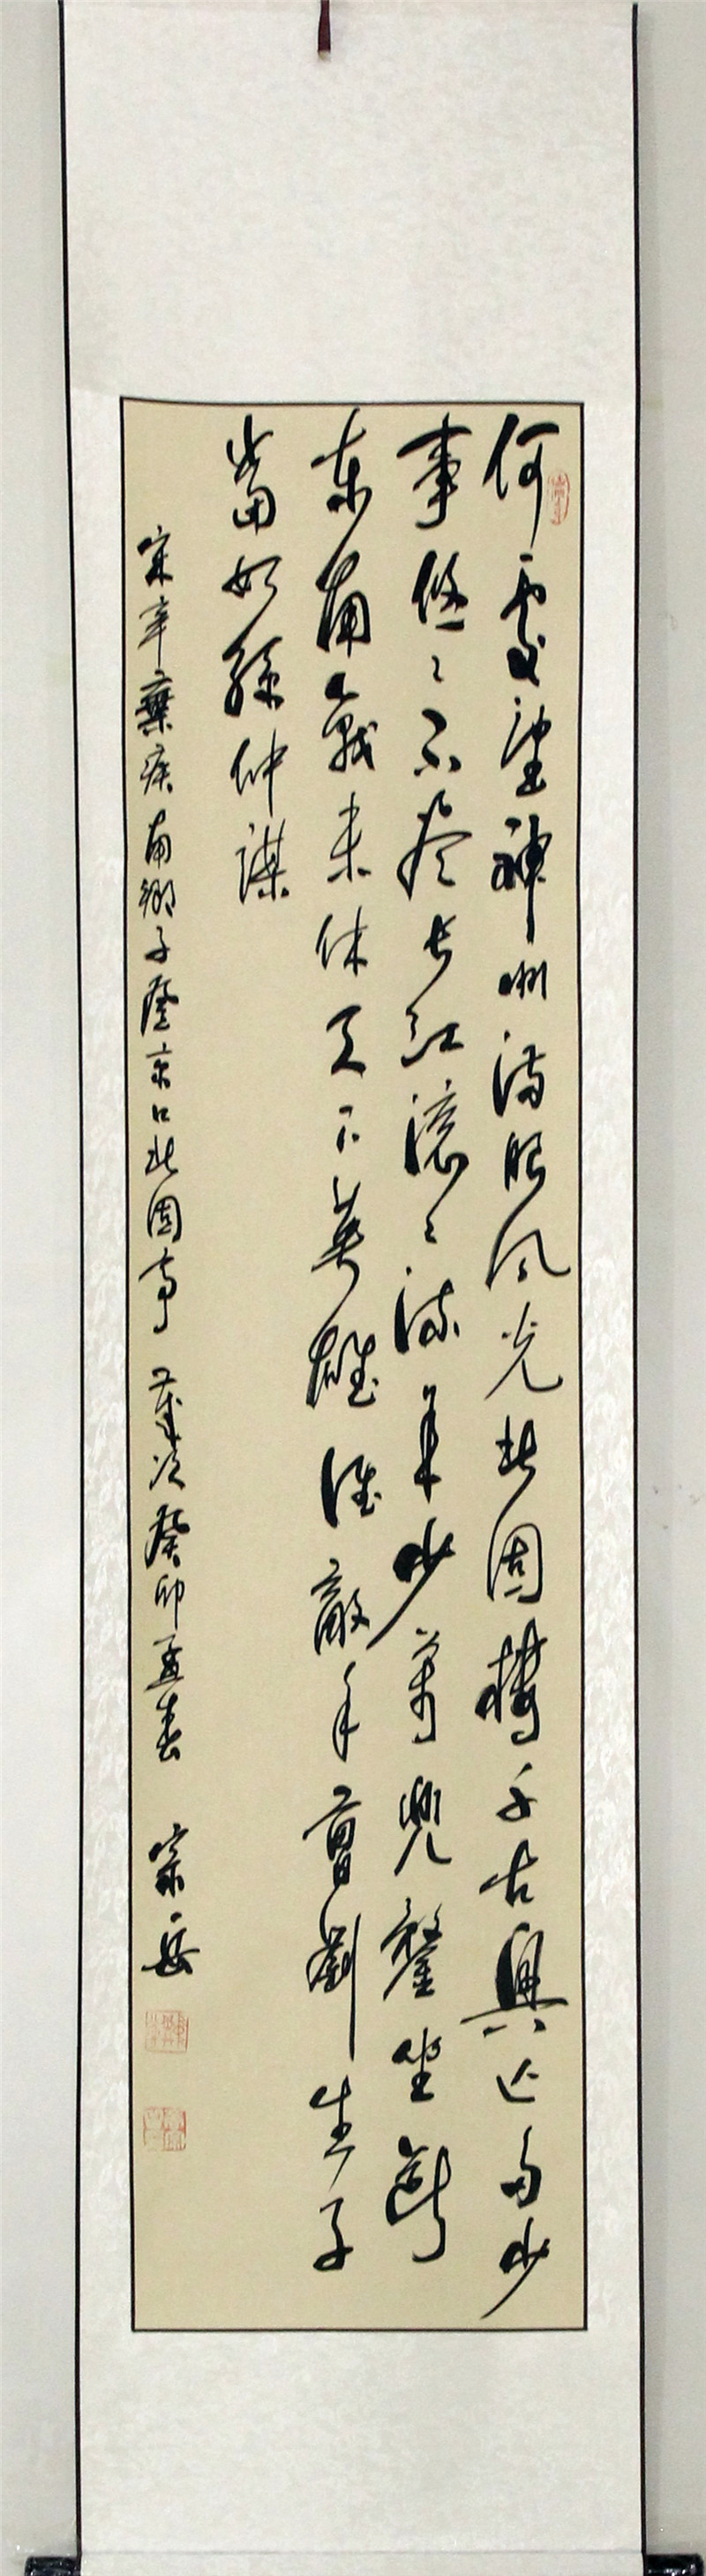 何處望神州滿眼風光北固樓千古興亡多少
事悠々不盡長江滚々流年少萬兜鍪坐斷
東南戰未休天下英雄誰敵手曹劉生子
當如孫仲謀
宋辛棄疾南鄉子登京口北固亭 歲次癸卯孟春 宗岳